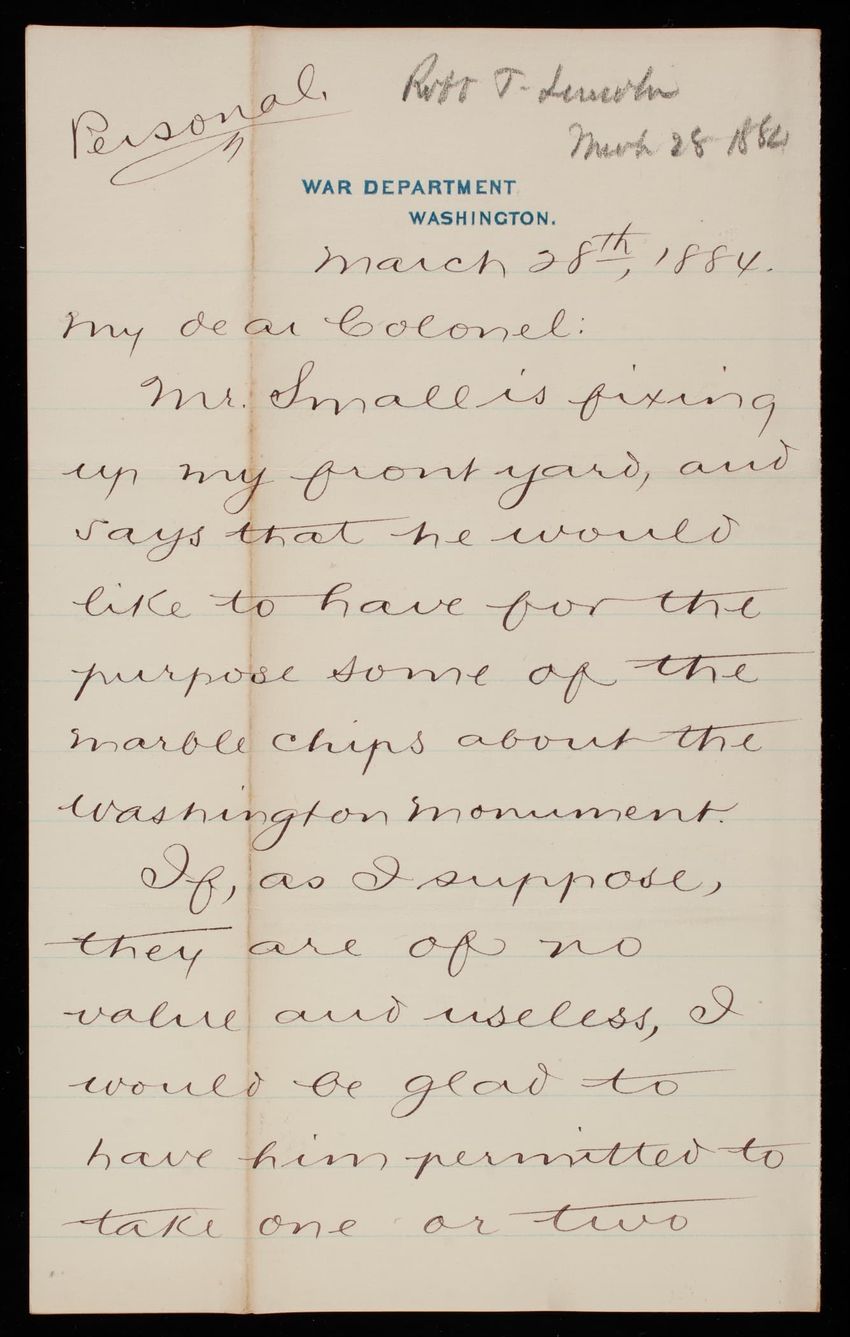 Personal.
Robt T. Lincoln
March 28 1884
WAR DEPARTMENT
WASHINGTON.
March 28th, 1884.
My dear Colonel:
Mr. Small is fixing
up my front yard, and
says that he would
like to have for the
purpose some of the
marble chips about the
Washington Monument.
If, as I suppose,
they are of no
value and useless, I
would be glad to
have him permitted to
take one or two